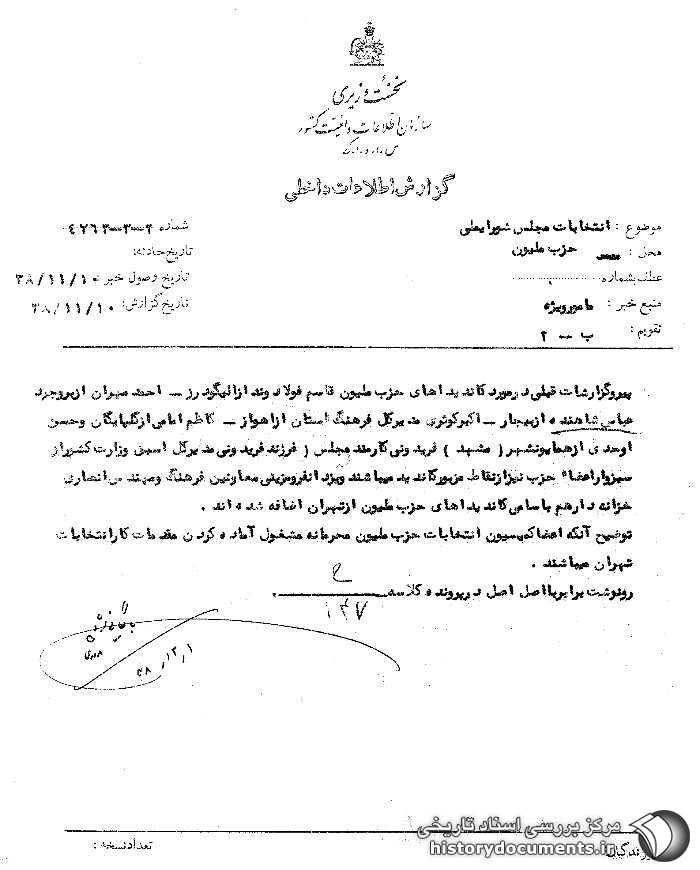 نخست وزیری
سازمان اطلاعات و امنیت کشور
س.ا.و.ا.ک
گزارش اطلاعات داخلی
موضوع : انتخابات مجلس شورایملی
شماره ۲-۳-۴۷۶۲
محل : حزب ملیون
تاریخ حادثه:
عطف بشماره
تاریخ وصول خبر ۳۸/۱۱/۱۰
منبع خبر : مامورویژه
تاریخ گزارش: ۳۸/۱۱/۱۰
تقویم : ب - ۲
پیروگزارشات قبلی درمورد کاندیداهای حزب ملیون قاسم فولادوند ازالیگودرز - احمد مهران ازبروجرد
عباس شاهنده ازبیجار - اکبرکوثری مدیرکل فرهنگ استان ازاهواز - کاظم امامی ازگلپایگان وحسن
اوحدی ازهمایونشهر ( مشهد ) فریدونی کارمند مجلس ( فرزند فریدونی مدیرکل اسبق وزارت کشوراز
سبزوار اعضاء حزب نیزازنقاط مزبورکاندید میباشند ویزدانفرومزینی معاونین فرهنگ ومهندس انصاری
خزانه دارهم باسامی کاندیداهای حزب ملیون ازتهران اضافه شده اند .
توضیح آنکه اعضاکمیسیون انتخابات حزب ملیون محرمانه مشغول آماده کردن مقدمات کارانتخابات
تهران میباشند .
رونوشت برابربااصل اصل درپرونده کلاسه .
۱۴۷
بایگانی شود
۳۸/۱۲/۱
تعداد نسخه :
مرکز بررسی اسناد تاریخی
historydocuments.ir